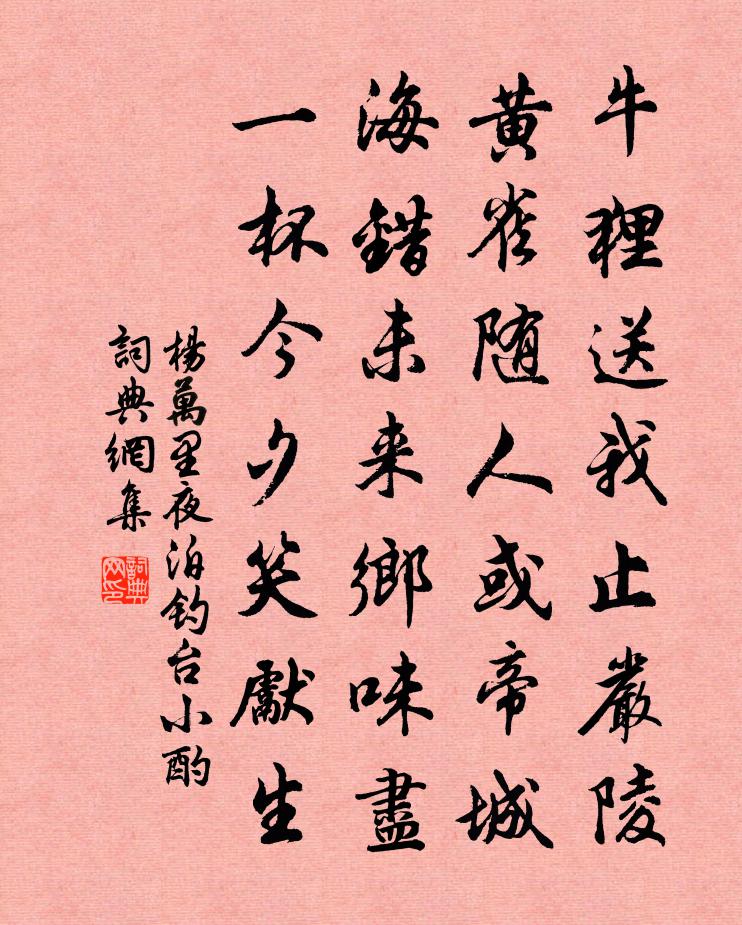 牛狸送我止嚴陵
黄雀随人或帝城
海錯未来鄉味盡
一杯今夕笑獻生
楊萬里夜泊钓台小酌
詞典網集
詞典网印